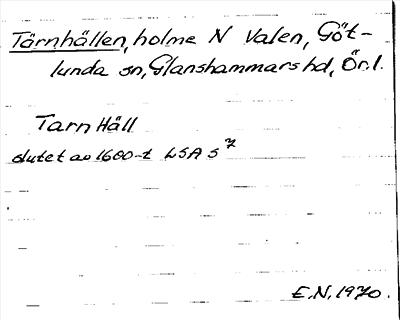 Tärnhällen, holme N Valen, Göt-
lunda sn, Glanshammars hd, Ör.l.
Tarn Häll
slutet av 1600-t LSA S 7
E.N. 1970.